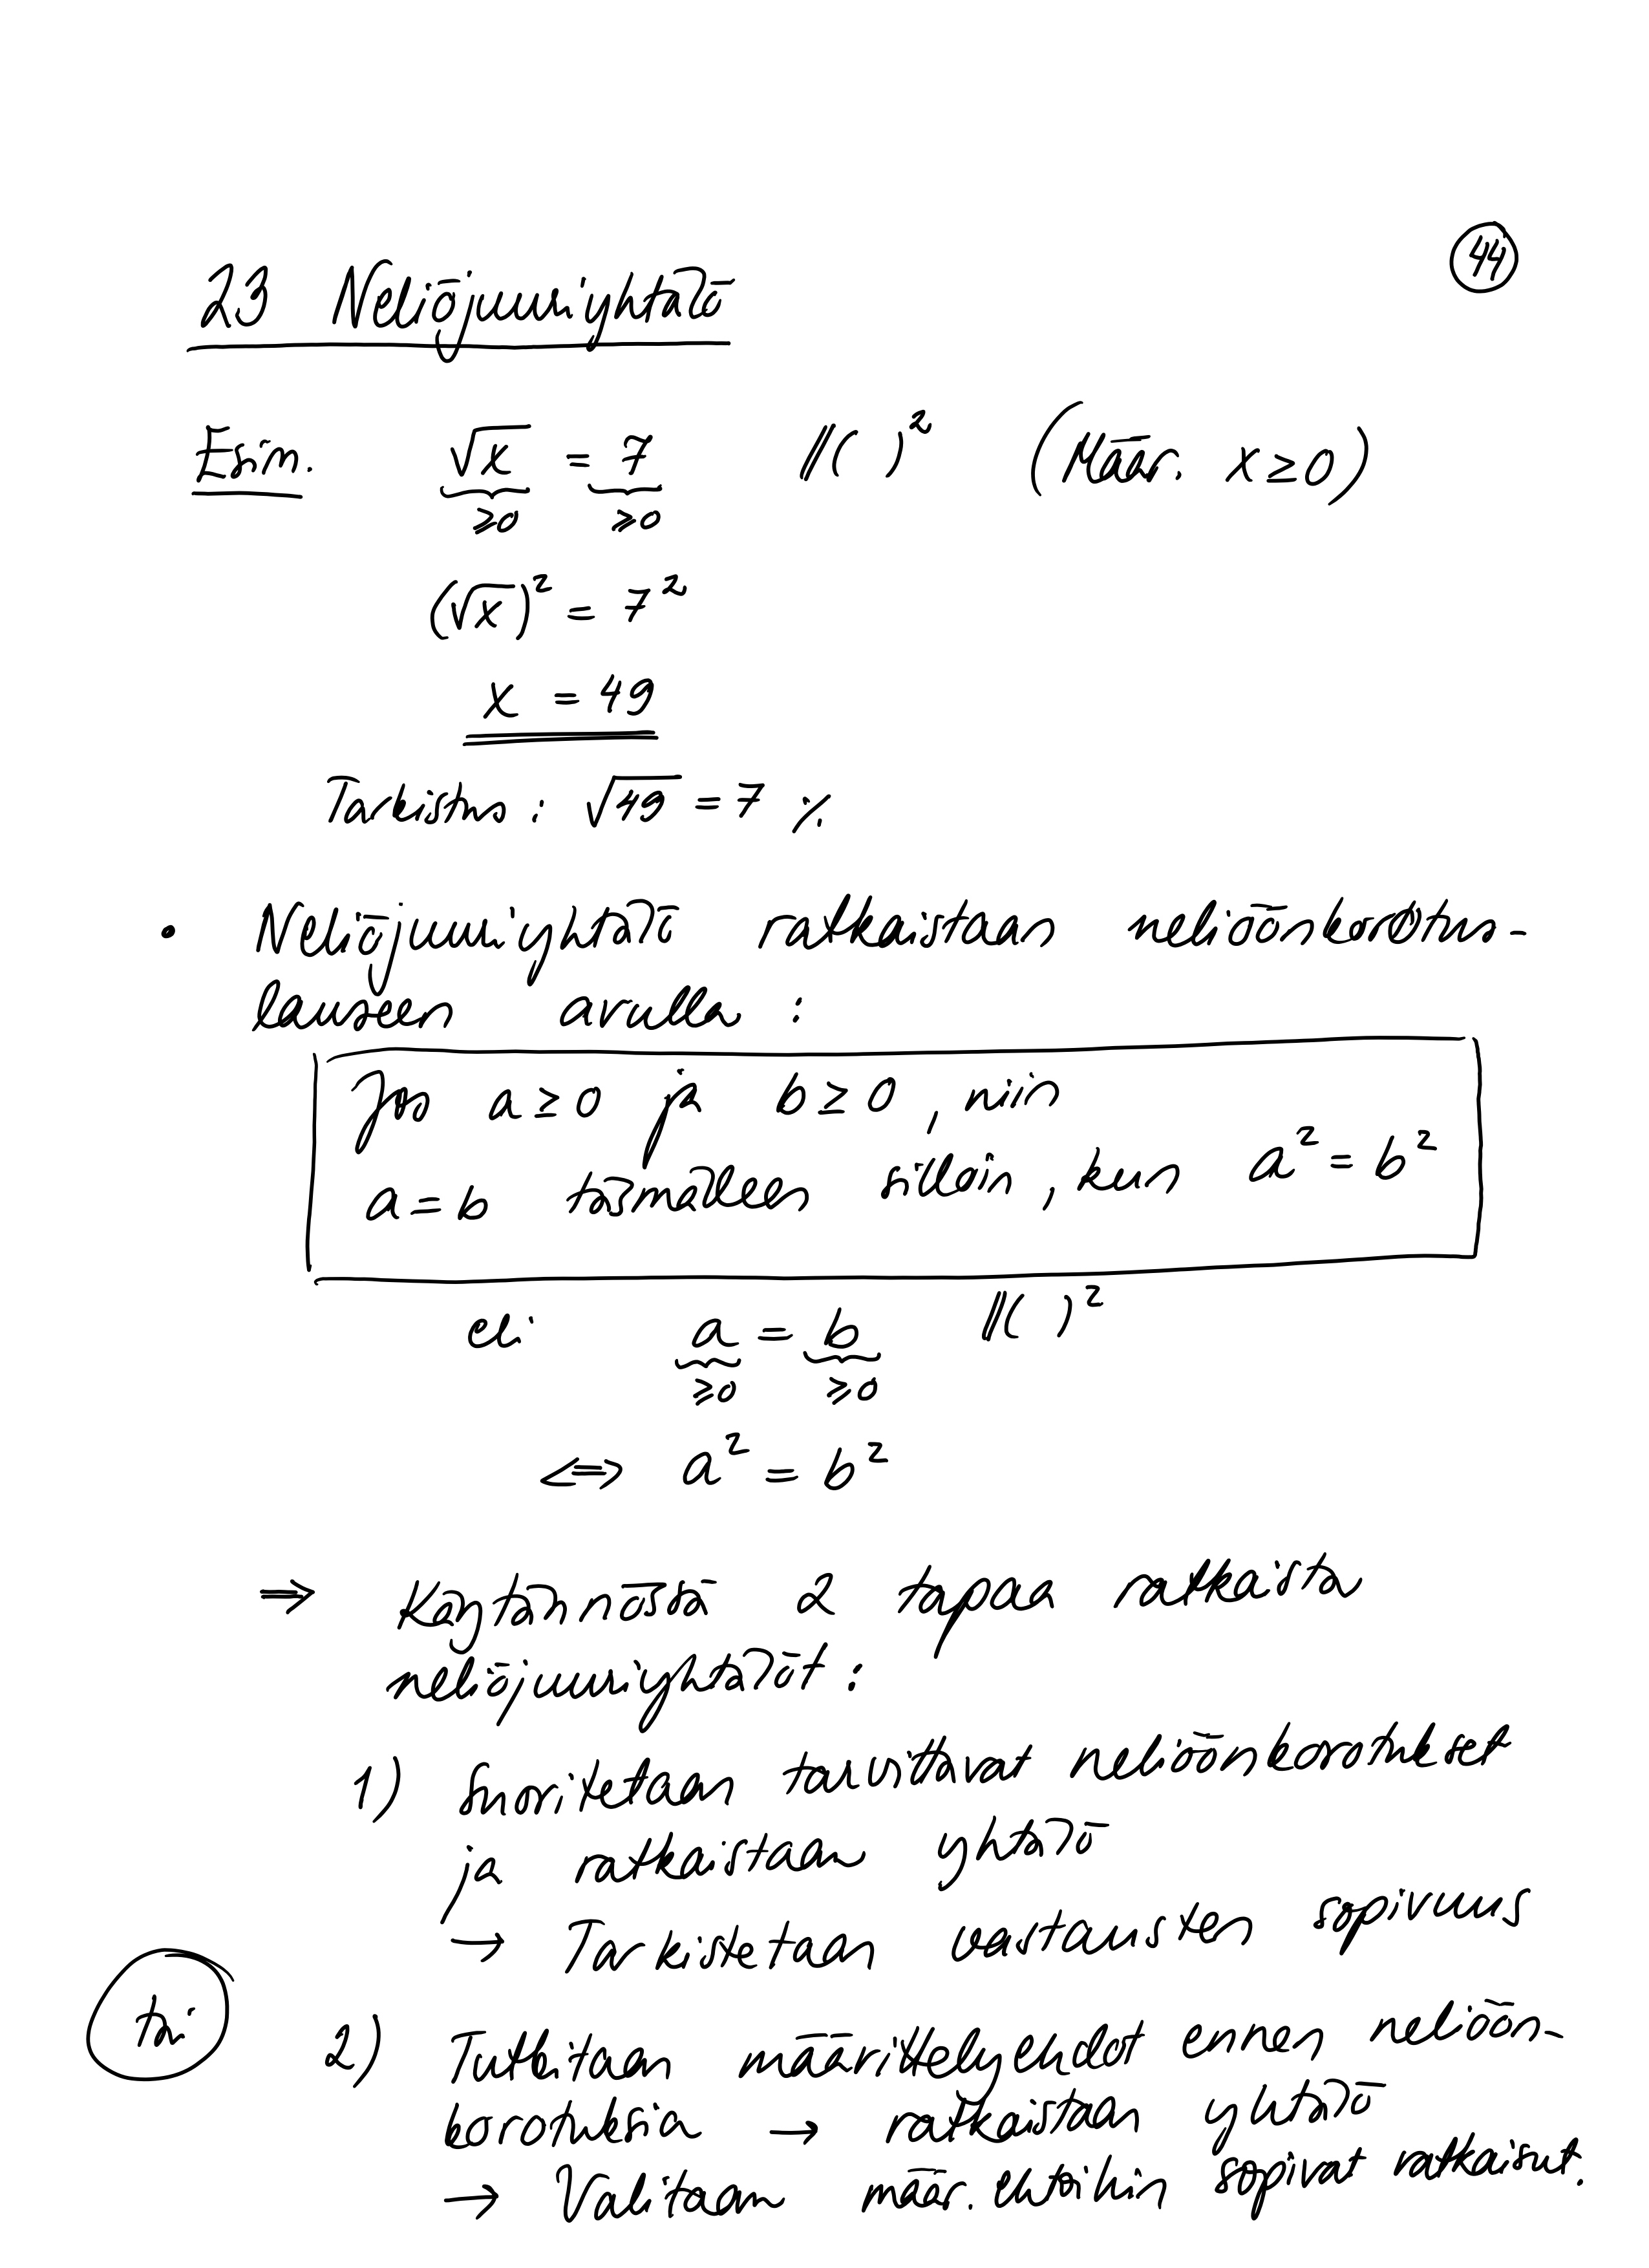 44
23 Neliöjuuriyhtälö
Esim. √x = 7 ‖( )² (Määr. x ≥ 0)
≥0 ≥0
(√x)² = 7²
x = 49
Tarkistus : √49 = 7 ٪.
• Neliöjuuriyhtälö ratkaistaan neliöönkorotus-
lauseen avulla :
Jos a ≥ 0 ja b ≥ 0, niin
a = b täsmälleen silloin, kun a² = b²
eli a = b ‖( )²
≥0 ≥0
⇔ a² = b²
⇒ Käytännössä 2 tapaa ratkaista
neliöjuuriyhtälöt :
1) Suoritetaan tarvittavat neliöönkorotukset
ja ratkaistaan yhtälö
→ Tarkistetaan vastausten sopivuus
tai
2) Tutkitaan määrittelyehdot ennen neliöön-
korotuksia → ratkaistaan yhtälö
→ Valitaan määr. ehtoihin sopivat ratkaisut.